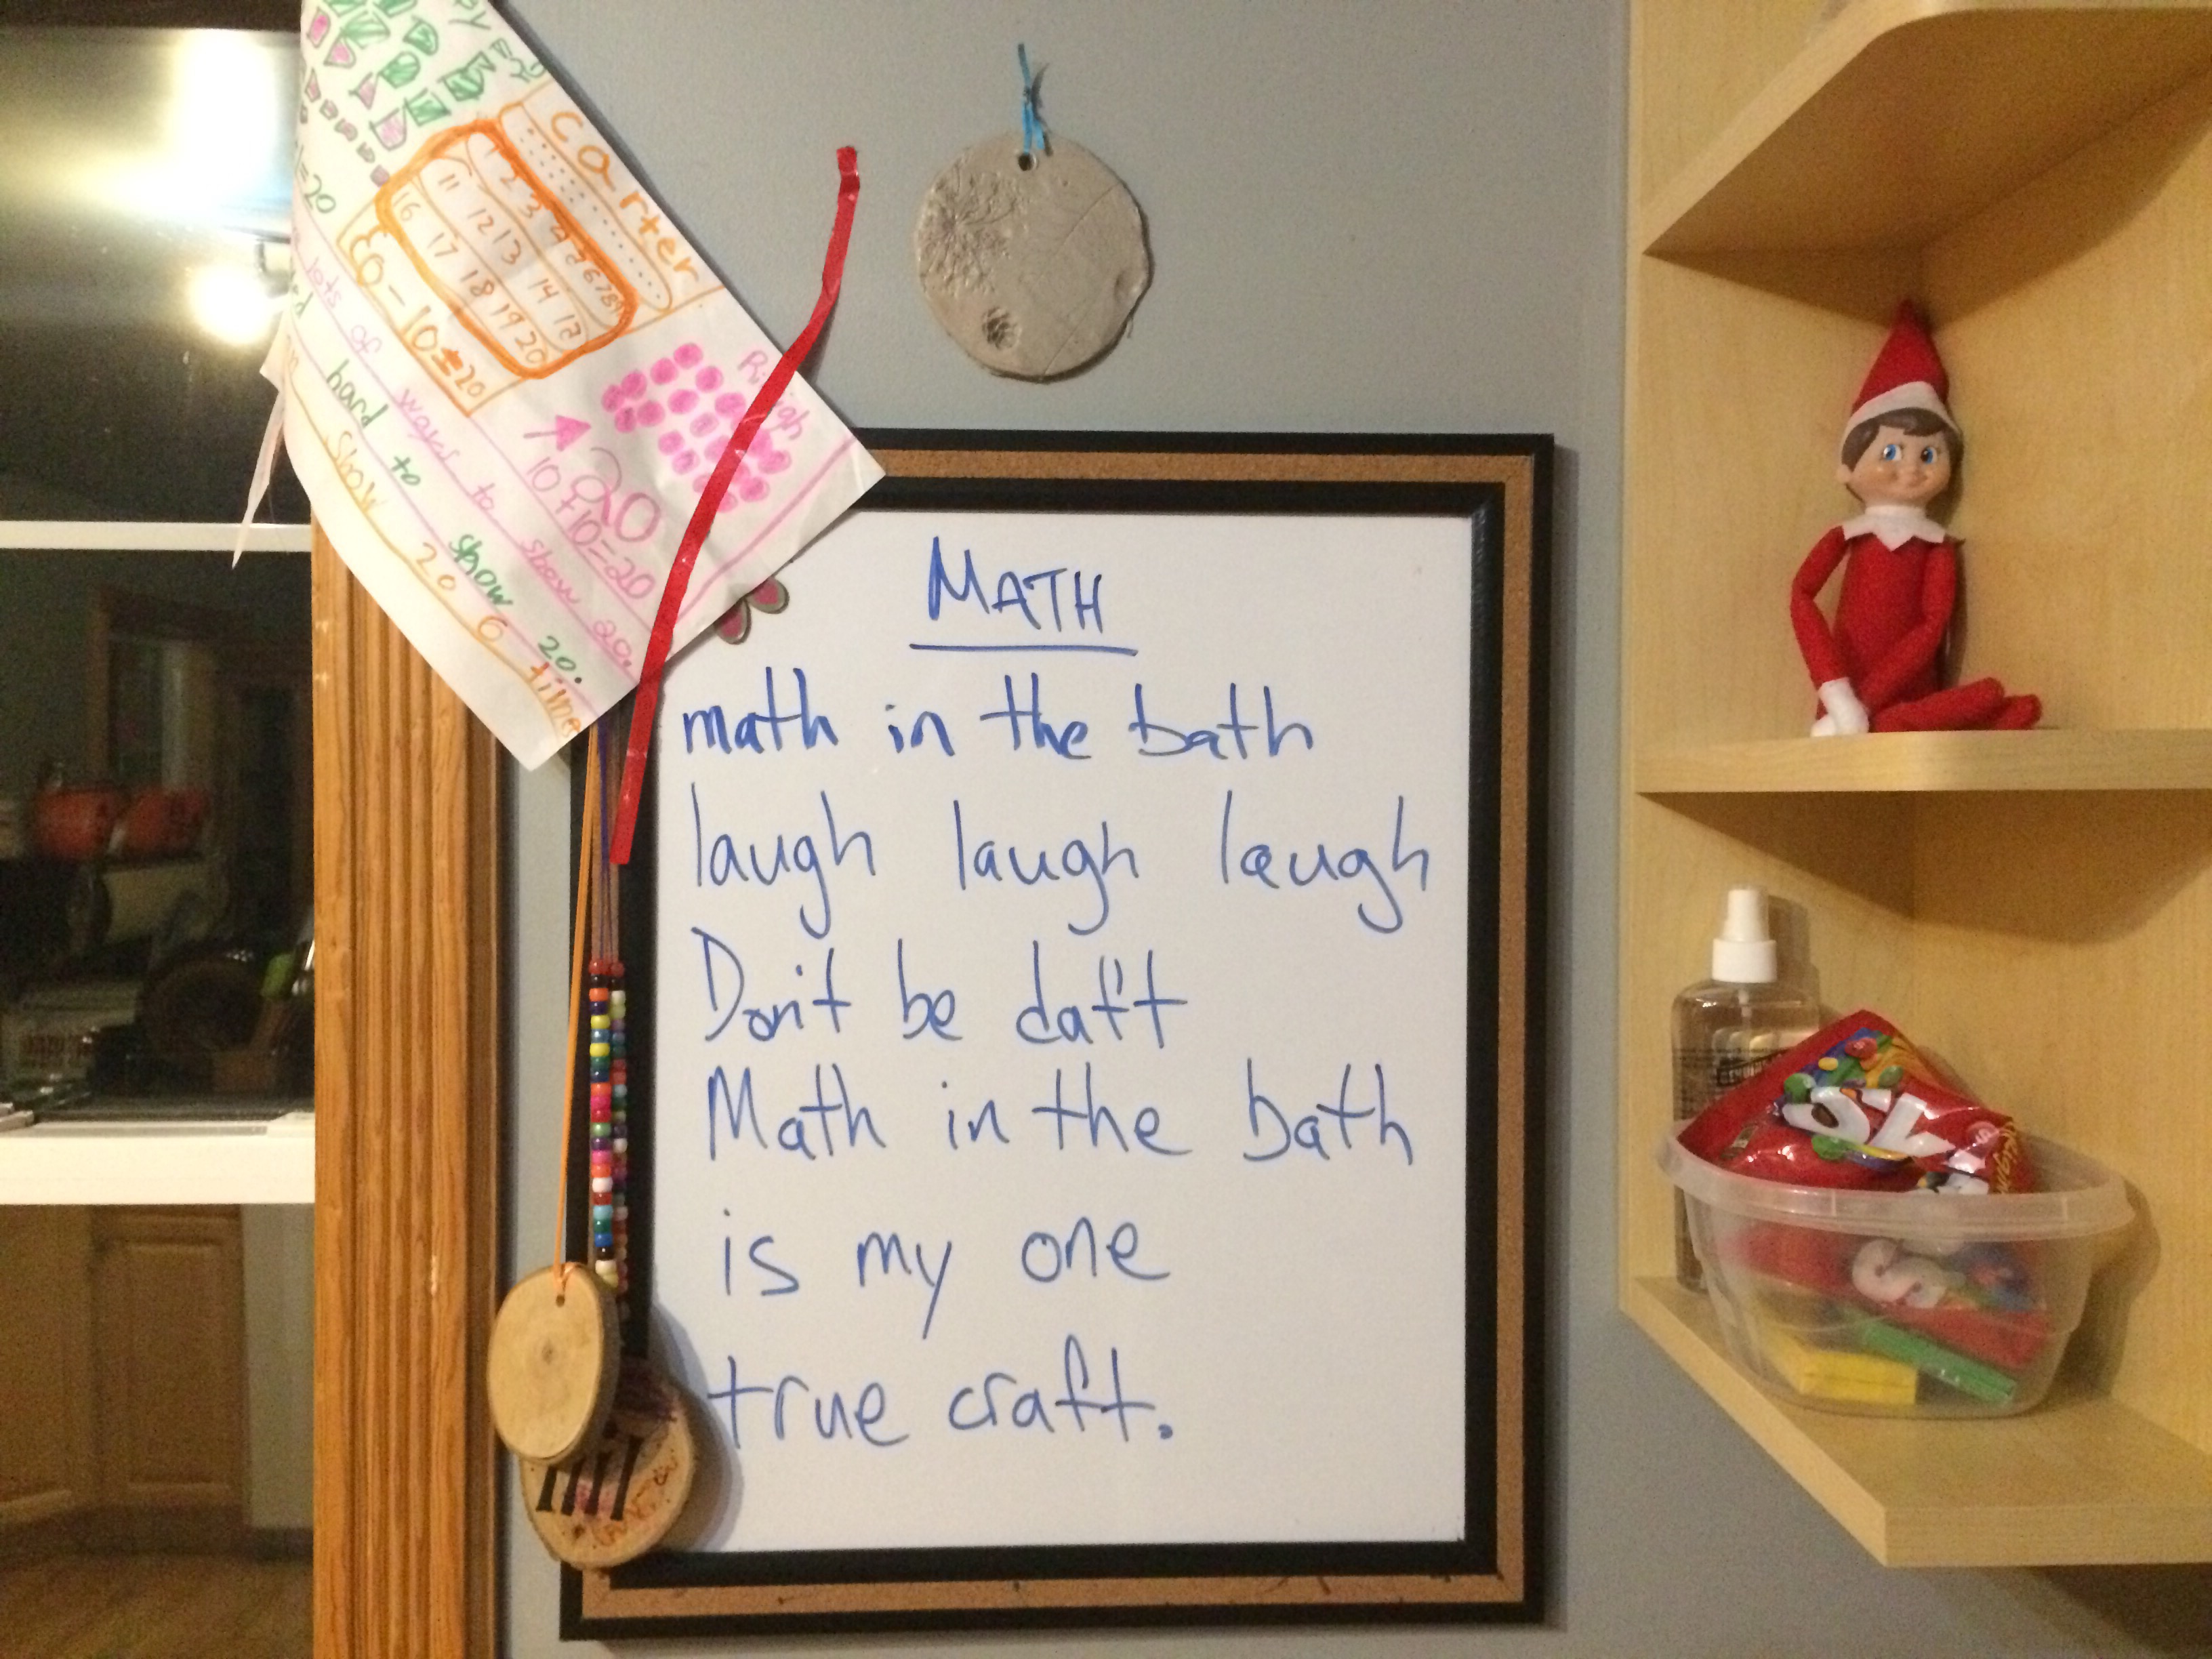 Carter
1 2 3 4 5 6 7 8 9
11 12 13 14
16 17 18 19 20
10=20
10+10=20
20
lots of ways to show 20.
hard to show 20.
show 20 6 time
MATH
math in the bath
laugh laugh laugh
Don't be daft
Math in the bath
is my one
true craft.